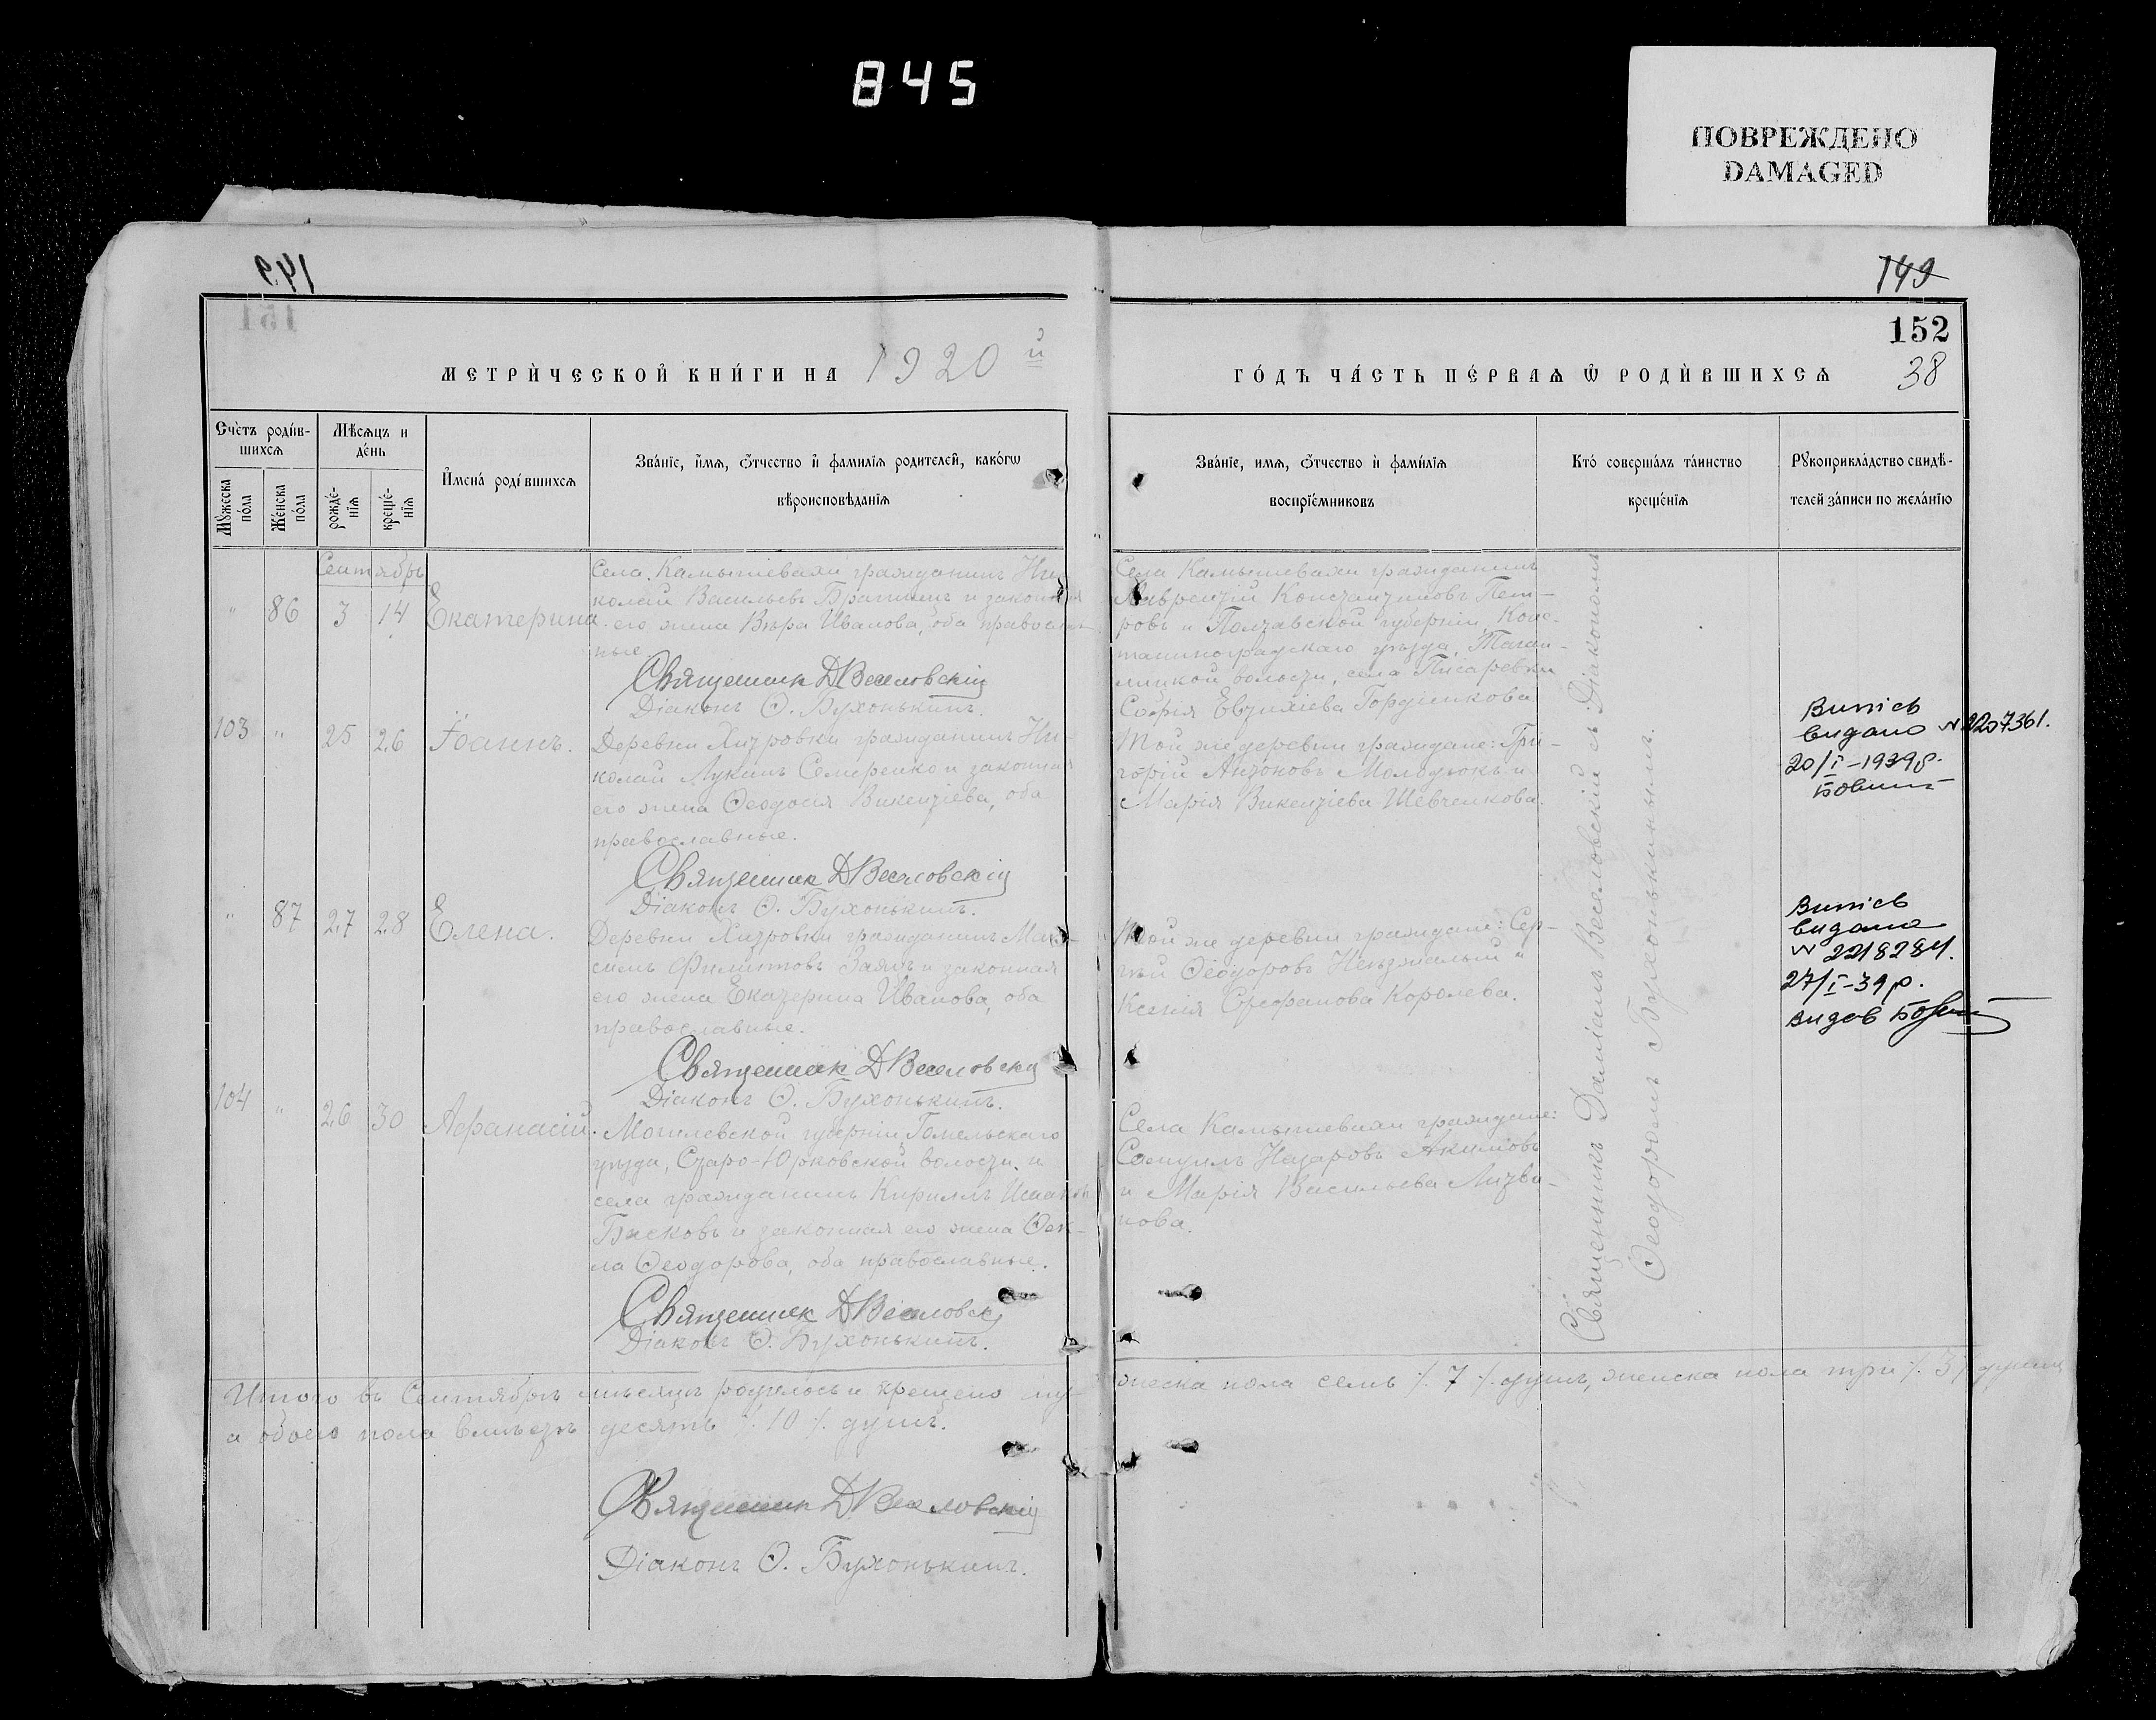 845
ПОВРЕЖДЕНО
DAMAGED
149
151
149
152
38
МЕТРИ́ЧЕСКОЙ КНИ́ГИ НА 1920й
ГО́ДЪ ЧА́СТЬ ПЕ́РВАѦ Ѽ РОДИ́ВШИХСѦ
Счетъ роди́в-
шихсѧ
Мꙋ́жеска по́ла
Же́нска по́ла
Мѣ́сѧцъ и
де́нь
рожде́-
нїѧ
креще́-
нїѧ
Имена́ роди́вшихсѧ
Зва́нїе, и́мѧ, ѻ́тчество и҆ фами́лїѧ родителей, како́гѡ
вѣроисповѣ́данїѧ
Зва́нїе, имѧ, ѻ́тчество и҆ фами́лїѧ
воспрїе́мниковъ
Кто́ соверша́лъ та́инство
креще́нїѧ
Рꙋкоприкла́дство свидѣ́-
телей за́писи по жела́нїю
Сентябрь
" 86 3 14 Екатерина.
Села Камышевахи гражданинъ Ни-
колай Васильевъ Брагинъ и законная
его жена Вѣра Иванова, оба православ-
ные.
Священникъ Д Веселовскій
Діаконъ Ѳ. Бухонькинъ.
Села Камышевахи гражданинъ
Лаврентій Константиновъ Пет-
ровъ и Полтавской губерніи, Конс-
тантиноградскаго уѣзда,
волости, села Писаревки
Софія Евтихіева Гордіенкова
103 " 25 26 Іоаннъ.
Деревни Хитровки гражданинъ Ни-
колай Лукинъ Семеренко и законная
его жена Ѳеодосія Викентіева, оба
православные.
Священникъ Д Веселовскій
Діаконъ Ѳ. Бухонькинъ.
Той же деревни граждане: Гри-
горій Антоновъ Молодыкъ и
Марія Викентіева Шевченкова.
Витісь
видано N 2207361.
20/I-1939р.
" 87 27 28 Елена.
Деревни Хитровки гражданинъ Мак-
симъ Филипповъ Заяцъ и законная
его жена Екатерина Иванова, оба
православные.
Священникъ Д Веселовскій
Діаконъ Ѳ. Бухонькинъ.
Той же деревни граждане: Сер-
гѣй Ѳеодоровъ и
Ксенія Стефанова Королева.
Витісь
видана
N 2218284.
27/I-39р.
видав
104 " 26 30 Аѳанасій.
Могилевской губерніи, Гомельскаго
уѣзда, Старо-Юрковской волости и
села гражданинъ Кириллъ Исааковъ
Бисковъ и законная его жена Ѳек-
ла Ѳеодорова, оба православные.
Священникъ Д Веселовскій
Діаконъ Ѳ. Бухонькинъ.
Села Камышевахи граждане:
Самуилъ Назаровъ Акимовъ
и Марія Васильева Литви-
нова.
Священникъ Даніилъ Веселовскій съ Діакономъ
Ѳеодоромъ Бухонькинымъ.
Итого въ Сентябрѣ мѣсяцѣ родилось и крещено му-
жеска пола семь /. 7 /. душъ, женска пола три /. 3 /. души
а обоего пола вмѣстѣ десять /. 10 /. душъ.
Священникъ Д Веселовскій
Діаконъ Ѳ. Бухонькинъ.